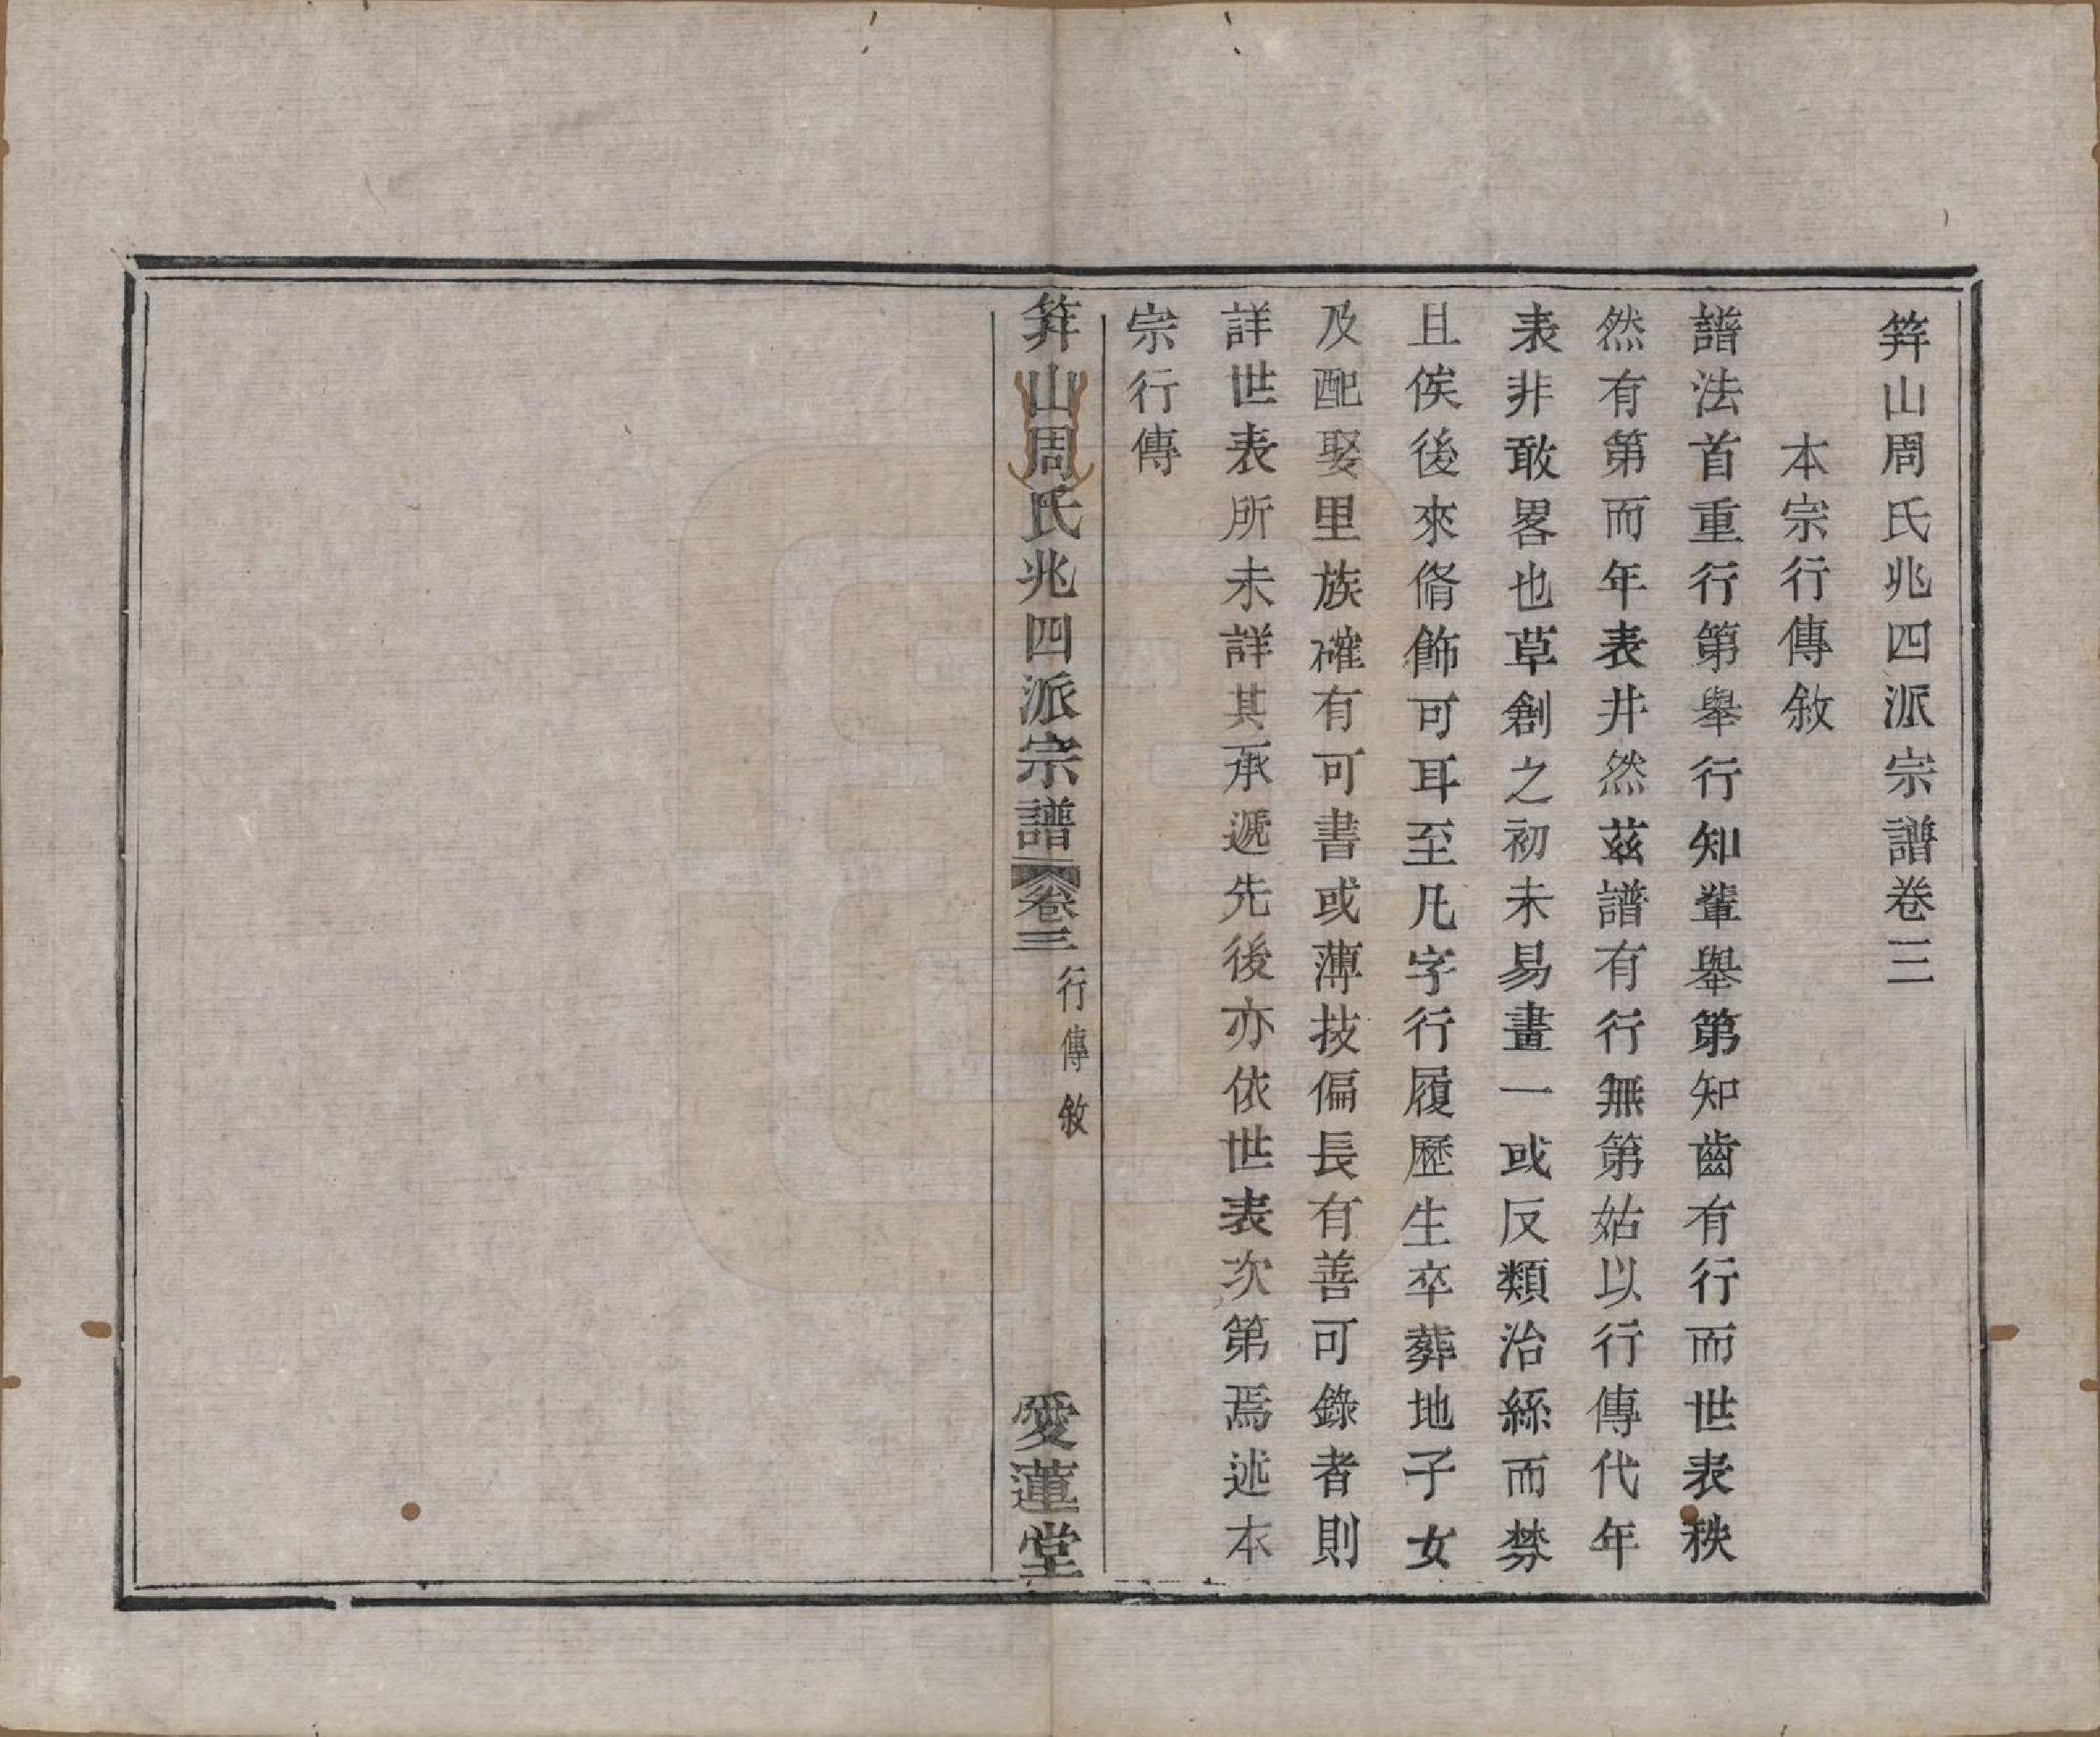 筭山周氏兆四派宗譜卷三
本宗行傳敘
譜法首重行第舉行知輩舉第知齒有行而世表秩
然有第而年表井然茲譜有行無第姑以行傳代年
表非敢畧也草創之初未易畫一或反類治絲而棼
且俟後來脩飾可耳至凡字行履歷生卒葬地子女
及配娶里族確有可書或薄技偏長有善可錄者則
詳世表所未詳其承遞先後亦依世表次第焉述本
宗行傳
筭山周氏兆四派宗譜 卷三 行傳敘 愛蓮堂